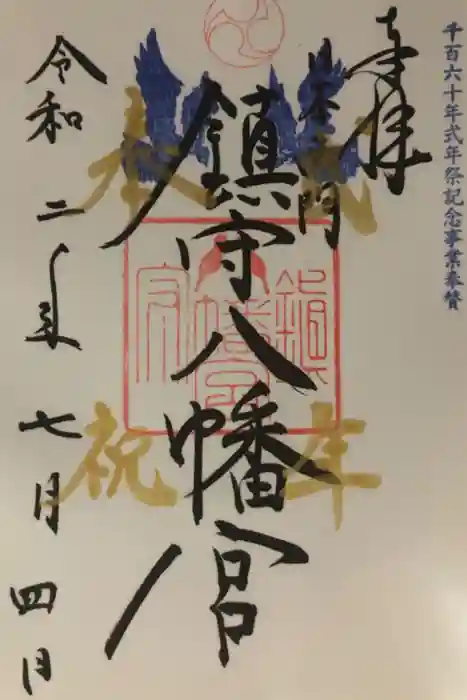 千百六十年式年祭記念事業奉賛
奉拝
式年
鎮守八幡宮
奉祝
令和二年七月四日